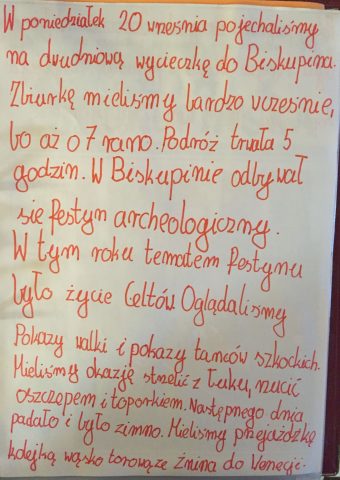 W poniedziałek 20 wnesnia pojechaliśmy
na dwudniową wycieczkę do Biskupina.
Zbiurkę mieliśmy bardzo wcześnie,
bo aż o 7 rano. Podróż trwała 5
godzin. W Biskupinie odbywał
się festyn archeologiczny.
W tym roku tematem festynu
było życie Celtów Oglądalismy
Pokazy walki i pokazy tańców szkockich.
Mieliśmy okazję strzelić z łuku, rzucić
oszczepem i toporkiem. Następnego dnia
padało i było zimno. Mieliśmy przejażdżkę
kolejką wąsko torową ze Żnina do Wenecji.